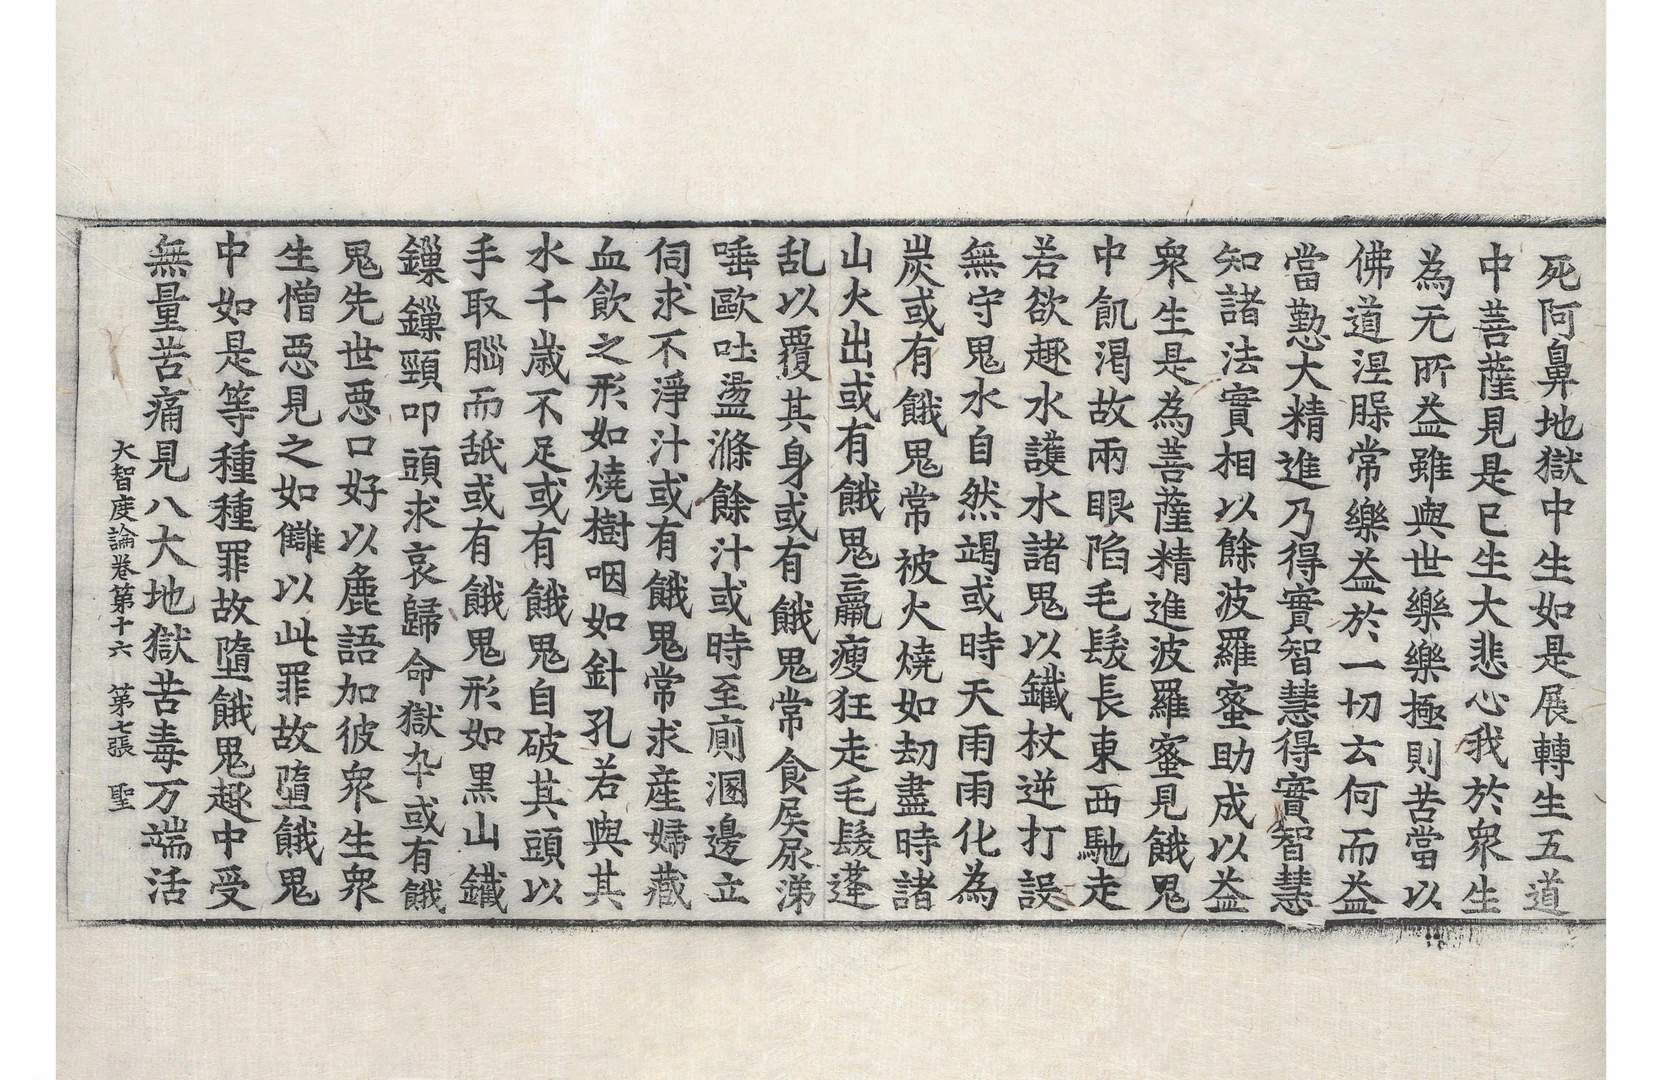 死阿鼻地獄中生如是展轉生五道
中菩薩見是已生大悲心我於衆生
為无所益雖與世樂樂極則苦當以
佛道涅槃常樂益於一切云何而益
當懃大精進乃得實智慧得實智慧
知諸法實相以餘波羅蜜助成以益
衆生是為菩薩精進波羅蜜見餓鬼
中飢渴故兩眼陷毛髮長東西馳走
若欲趣水護水諸鬼以鐵杖逆打設
無守鬼水自然竭或時天雨雨化為
炭或有餓鬼常被火燒如劫盡時諸
山火出或有餓鬼羸瘦狂走毛髮蓬
乱以覆其身或有餓鬼常食屎尿涕
唾歐吐盪滌餘汁或時至廁溷邊立
伺求不淨汁或有餓鬼常求産婦藏
血飲之形如燒樹咽如針孔若與其
水千歲不足或有餓鬼自破其頭以
手取腦而舐或有餓鬼形如黑山鐵
鏁鏁頸叩頭求哀歸命獄卒或有餓
鬼先世悪口好以麁語加彼衆生衆
生憎悪見之如讎以此罪故墮餓鬼
中如是等種種罪故墮餓鬼趣中受
無量苦痛見八大地獄苦毒万端活
大智度論卷第十六　第七張　聖